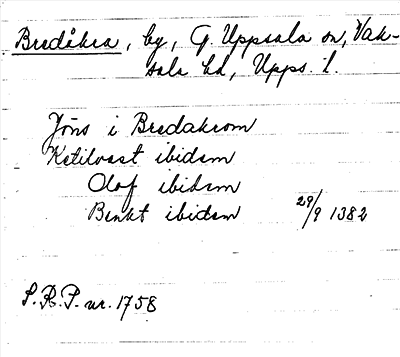 Bredåkra, by, G. Uppsala sn, Vak-
sala hd, Upps. l.
Jöns i Bredakrom
Ketilvast ibidem
Olof ibidem
Benkt ibidem 29/9 1382
S.R.P. nr. 1758